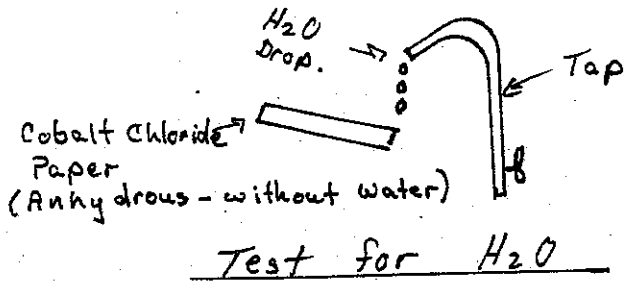 H2O
Drop.
Tap
Cobalt Chloride
Paper
(Anhydrous - without water)
Test for H2O